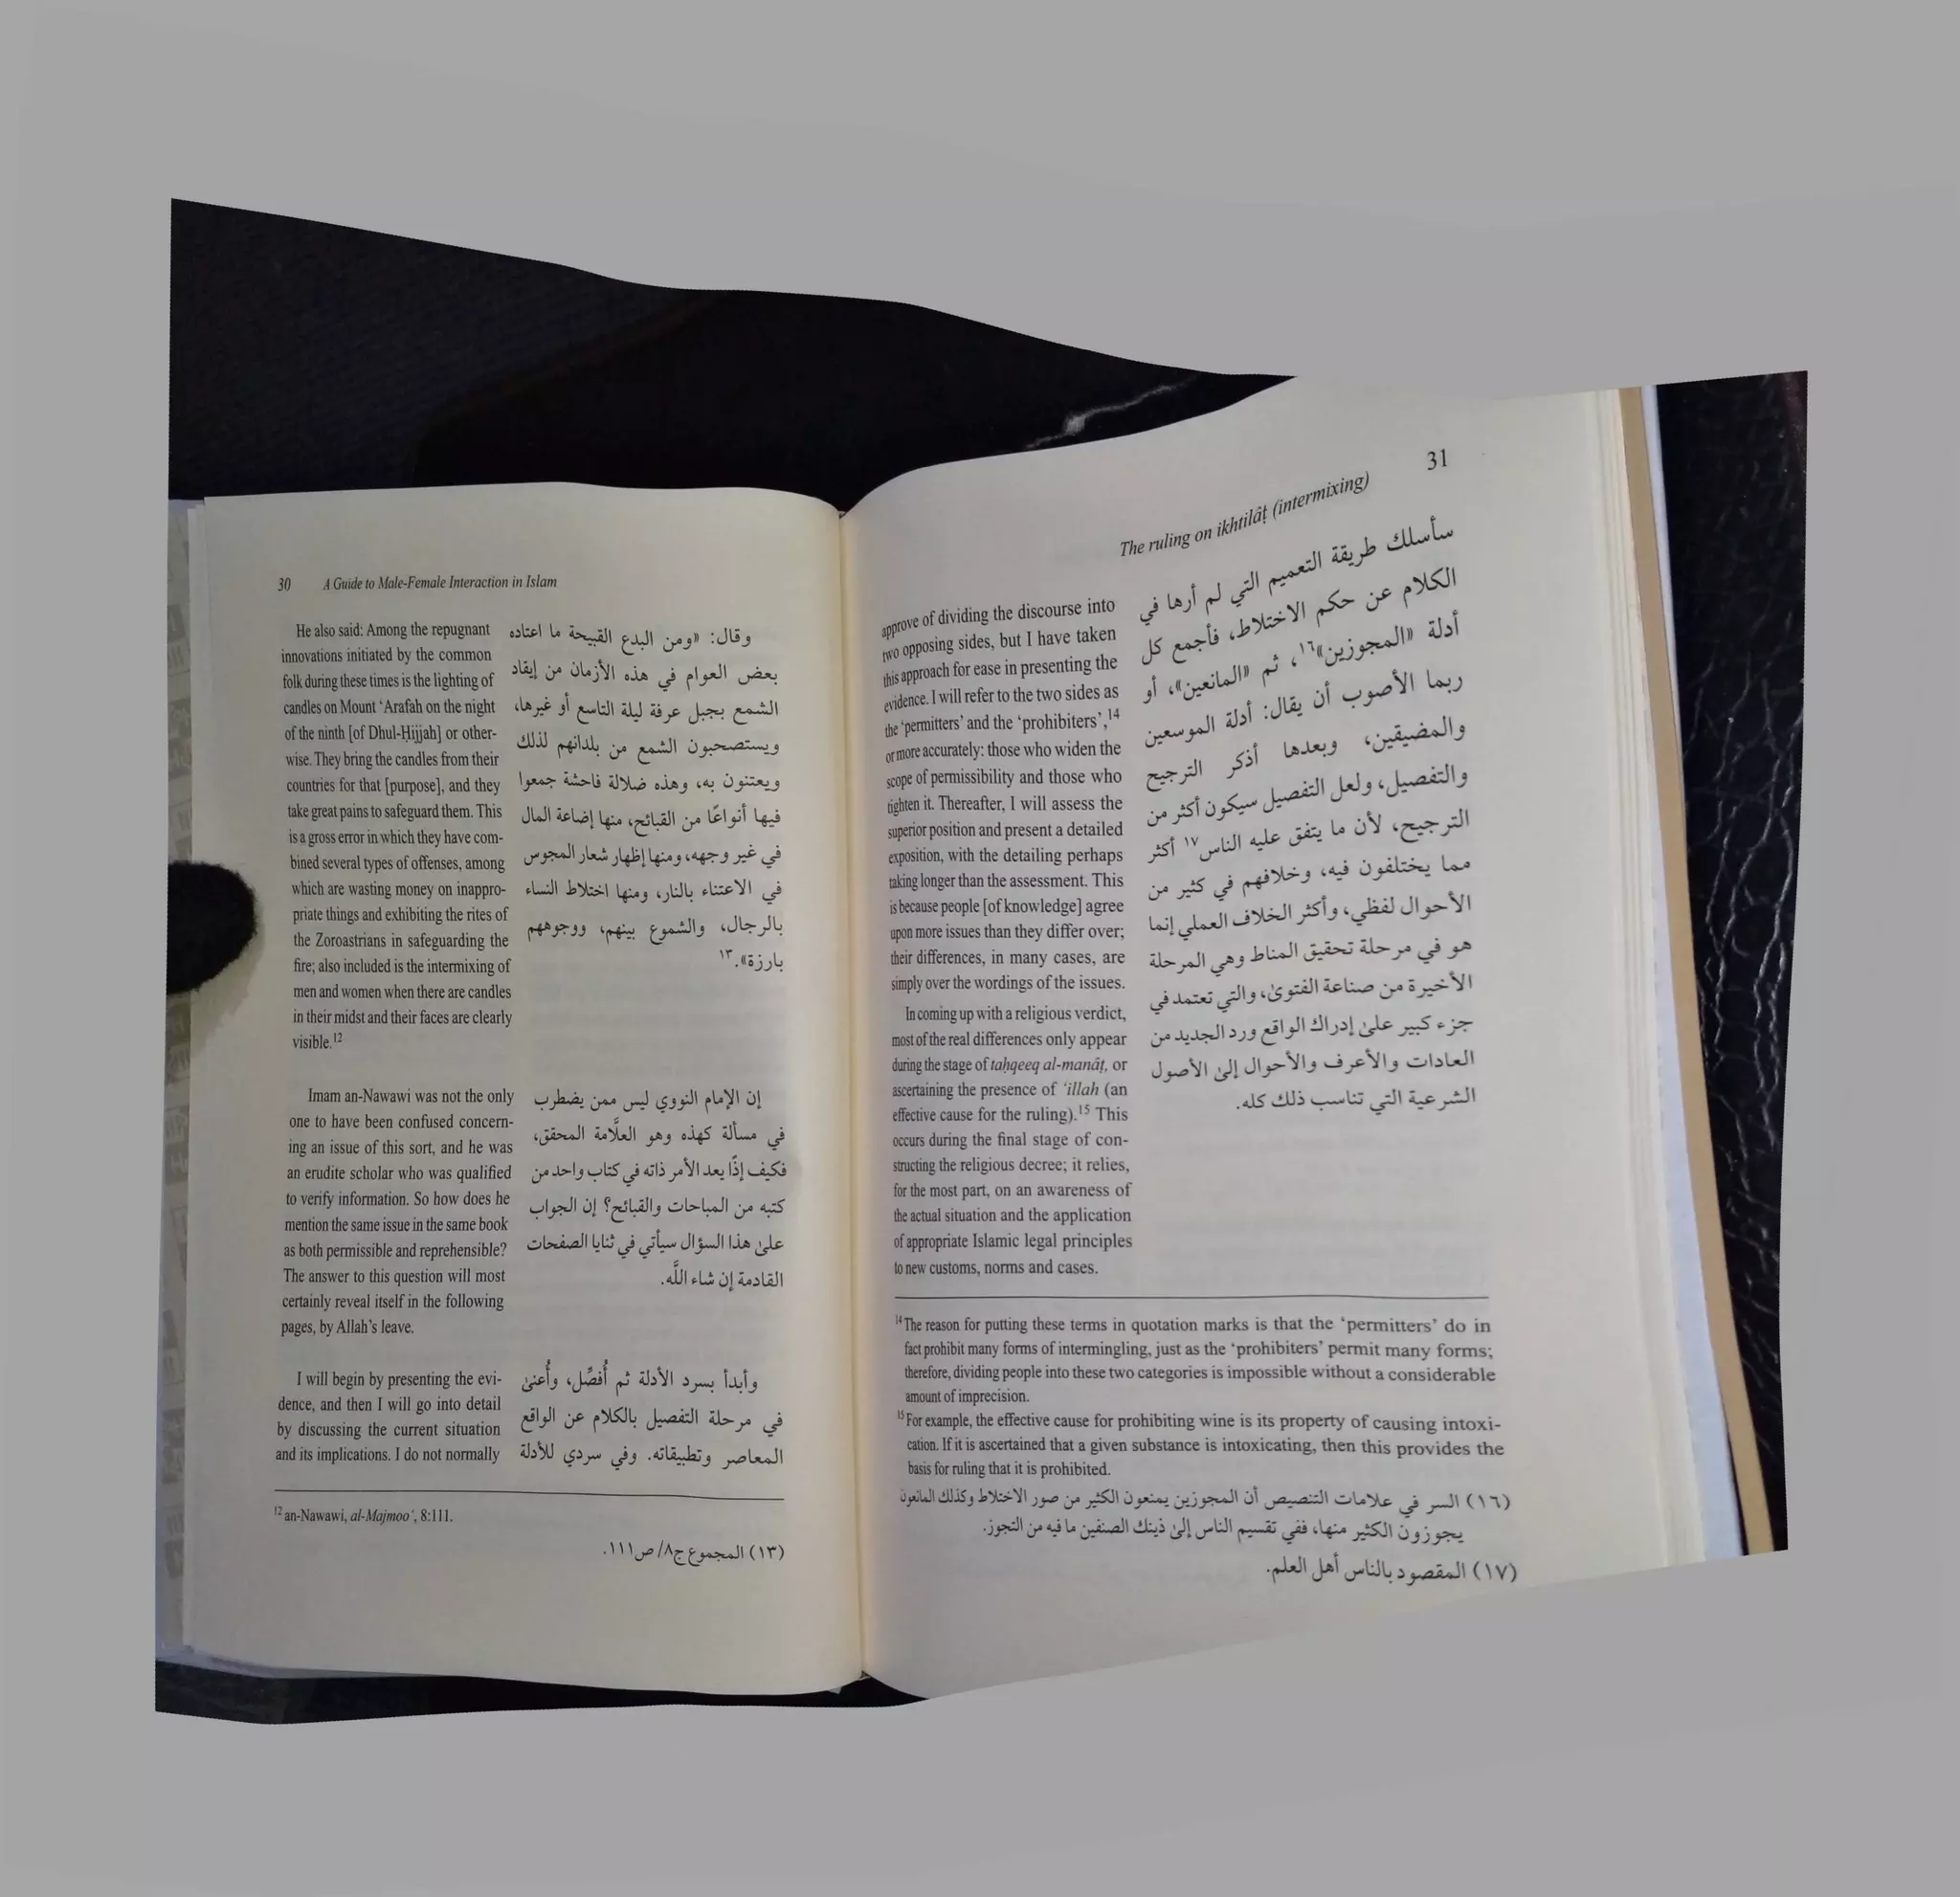 30 A Guide to Male-Female Interaction in Islam
He also said: Among the repugnant
innovations initiated by the common
folk during these times is the lighting of
candles on Mount ‘Arafah on the night
of the ninth [of Dhul-Ḥijjah] or other-
wise. They bring the candles from their
countries for that [purpose], and they
take great pains to safeguard them. This
is a gross error in which they have com-
bined several types of offenses, among
which are wasting money on inappro-
priate things and exhibiting the rites of
the Zoroastrians in safeguarding the
fire; also included is the intermixing of
men and women when there are candles
in their midst and their faces are clearly
visible.12
Imam an-Nawawi was not the only
one to have been confused concern-
ing an issue of this sort, and he was
an erudite scholar who was qualified
to verify information. So how does he
mention the same issue in the same book
as both permissible and reprehensible?
The answer to this question will most
certainly reveal itself in the following
pages, by Allah’s leave.
I will begin by presenting the evi-
dence, and then I will go into detail
by discussing the current situation
and its implications. I do not normally
وقال: «ومن البدع القبيحة ما اعتاده
بعض العوام في هذه الأزمان من إيقاد
الشمع بجبل عرفة ليلة التاسع أو غيرها،
ويستصحبون الشمع من بلدانهم لذلك
ويعتنون به، وهذه ضلالة فاحشة جمعوا
فيها أنواعًا من القبائح، منها إضاعة المال
في غير وجهه، ومنها إظهار شعار المجوس
في الاعتناء بالنار، ومنها اختلاط النساء
بالرجال، والشموع بينهم، ووجوههم
بارزة».١٣
إن الإمام النووي ليس ممن يضطرب
في مسألة كهذه وهو العلَّامة المحقق،
فكيف إذًا يعد الأمر ذاته في كتاب واحد من
كتبه من المباحات والقبائح؟ إن الجواب
علىٰ هذا السؤال سيأتي في ثنايا الصفحات
القادمة إن شاء اللَّه.
وأبدأ بسرد الأدلة ثم أُفصِّل، وأُعنىٰ
في مرحلة التفصيل بالكلام عن الواقع
المعاصر وتطبيقاته. وفي سردي للأدلة
12 an-Nawawi, al-Majmoo‘, 8:111.
(١٣) المجموع ج٨/ ص١١١.
The ruling on ikhtilâṭ (intermixing) 31
approve of dividing the discourse into
two opposing sides, but I have taken
this approach for ease in presenting the
evidence. I will refer to the two sides as
the ‘permitters’ and the ‘prohibiters’,14
or more accurately: those who widen the
scope of permissibility and those who
tighten it. Thereafter, I will assess the
superior position and present a detailed
exposition, with the detailing perhaps
taking longer than the assessment. This
is because people [of knowledge] agree
upon more issues than they differ over;
their differences, in many cases, are
simply over the wordings of the issues.
In coming up with a religious verdict,
most of the real differences only appear
during the stage of taḥqeeq al-manâṭ, or
ascertaining the presence of ‘illah (an
effective cause for the ruling).15 This
occurs during the final stage of con-
structing the religious decree; it relies,
for the most part, on an awareness of
the actual situation and the application
of appropriate Islamic legal principles
to new customs, norms and cases.
سأسلك طريقة التعميم التي لم أرها في
الكلام عن حكم الاختلاط، فأجمع كل
أدلة «المجوزين»١٦، ثم «المانعين»، أو
ربما الأصوب أن يقال: أدلة الموسعين
والمضيقين، وبعدها أذكر الترجيح
والتفصيل، ولعل التفصيل سيكون أكثر من
الترجيح، لأن ما يتفق عليه الناس١٧ أكثر
مما يختلفون فيه، وخلافهم في كثير من
الأحوال لفظي، وأكثر الخلاف العملي إنما
هو في مرحلة تحقيق المناط وهي المرحلة
الأخيرة من صناعة الفتوىٰ، والتي تعتمد في
جزء كبير علىٰ إدراك الواقع ورد الجديد من
العادات والأعرف والأحوال إلىٰ الأصول
الشرعية التي تناسب ذلك كله.
14 The reason for putting these terms in quotation marks is that the ‘permitters’ do in
fact prohibit many forms of intermingling, just as the ‘prohibiters’ permit many forms;
therefore, dividing people into these two categories is impossible without a considerable
amount of imprecision.
15 For example, the effective cause for prohibiting wine is its property of causing intoxi-
cation. If it is ascertained that a given substance is intoxicating, then this provides the
basis for ruling that it is prohibited.
(١٦) السر في علامات التنصيص أن المجوزين يمنعون الكثير من صور الاختلاط وكذلك المانعون
يجوزون الكثير منها، ففي تقسيم الناس إلىٰ ذينك الصنفين ما فيه من التجوز.
(١٧) المقصود بالناس أهل العلم.